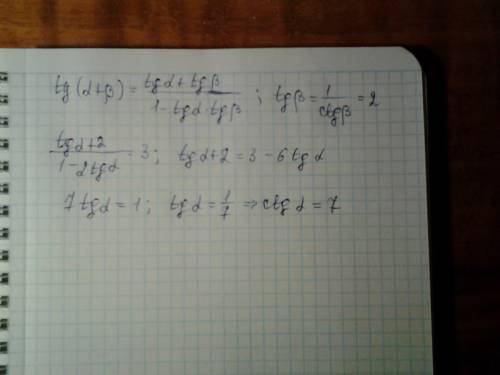 tg(α+β) = (tgα + tgβ)/(1 - tgα·tgβ); tgβ = 1/ctgβ = 2
(tgα+2)/(1-2tgα) = 3; tgα+2 = 3 - 6tgα
7tgα = 1; tgα = 1/7 ⇒ ctgα = 7